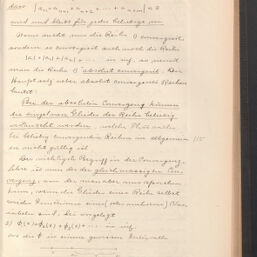 dass |a_n + a_{n+1} + a_{n+2} + ... + a_{n+m}| <
wird und bleibt für jedes beliebige m.
Wenn nicht nur die Reihe () convergirt
sondern es convergirt auch noch die Reihe
|a_0| + |a_1| + |a_2| + ... in inf., so nennt
man die Reihe () absolut convergent. Der
Hauptsatz ueber absolut convergente Reihen
lautet:
Bei der absoluten Convergenz können
die einzelnen Glieder der Reihe beliebig
vertauscht werden, welche
bei beliebig convergenten Reihen im allgemeinen
nicht gültig ist.
Der wichtigste Begriff in der Convergenz-
lehre ist nun der der gleichmässigen Con-
vergenz, von der man aber nur sprechen
kann, wenn die Glieder einer Reihe selbst
wieder Functionen einer (oder mehrerer) Va-
riabeln sind. Sei vorgelegt
2) ϕ_0(x) + ϕ_1(x) + ϕ_2(x) + ... in inf.
wo die ϕ in einem gewissen Intervalle